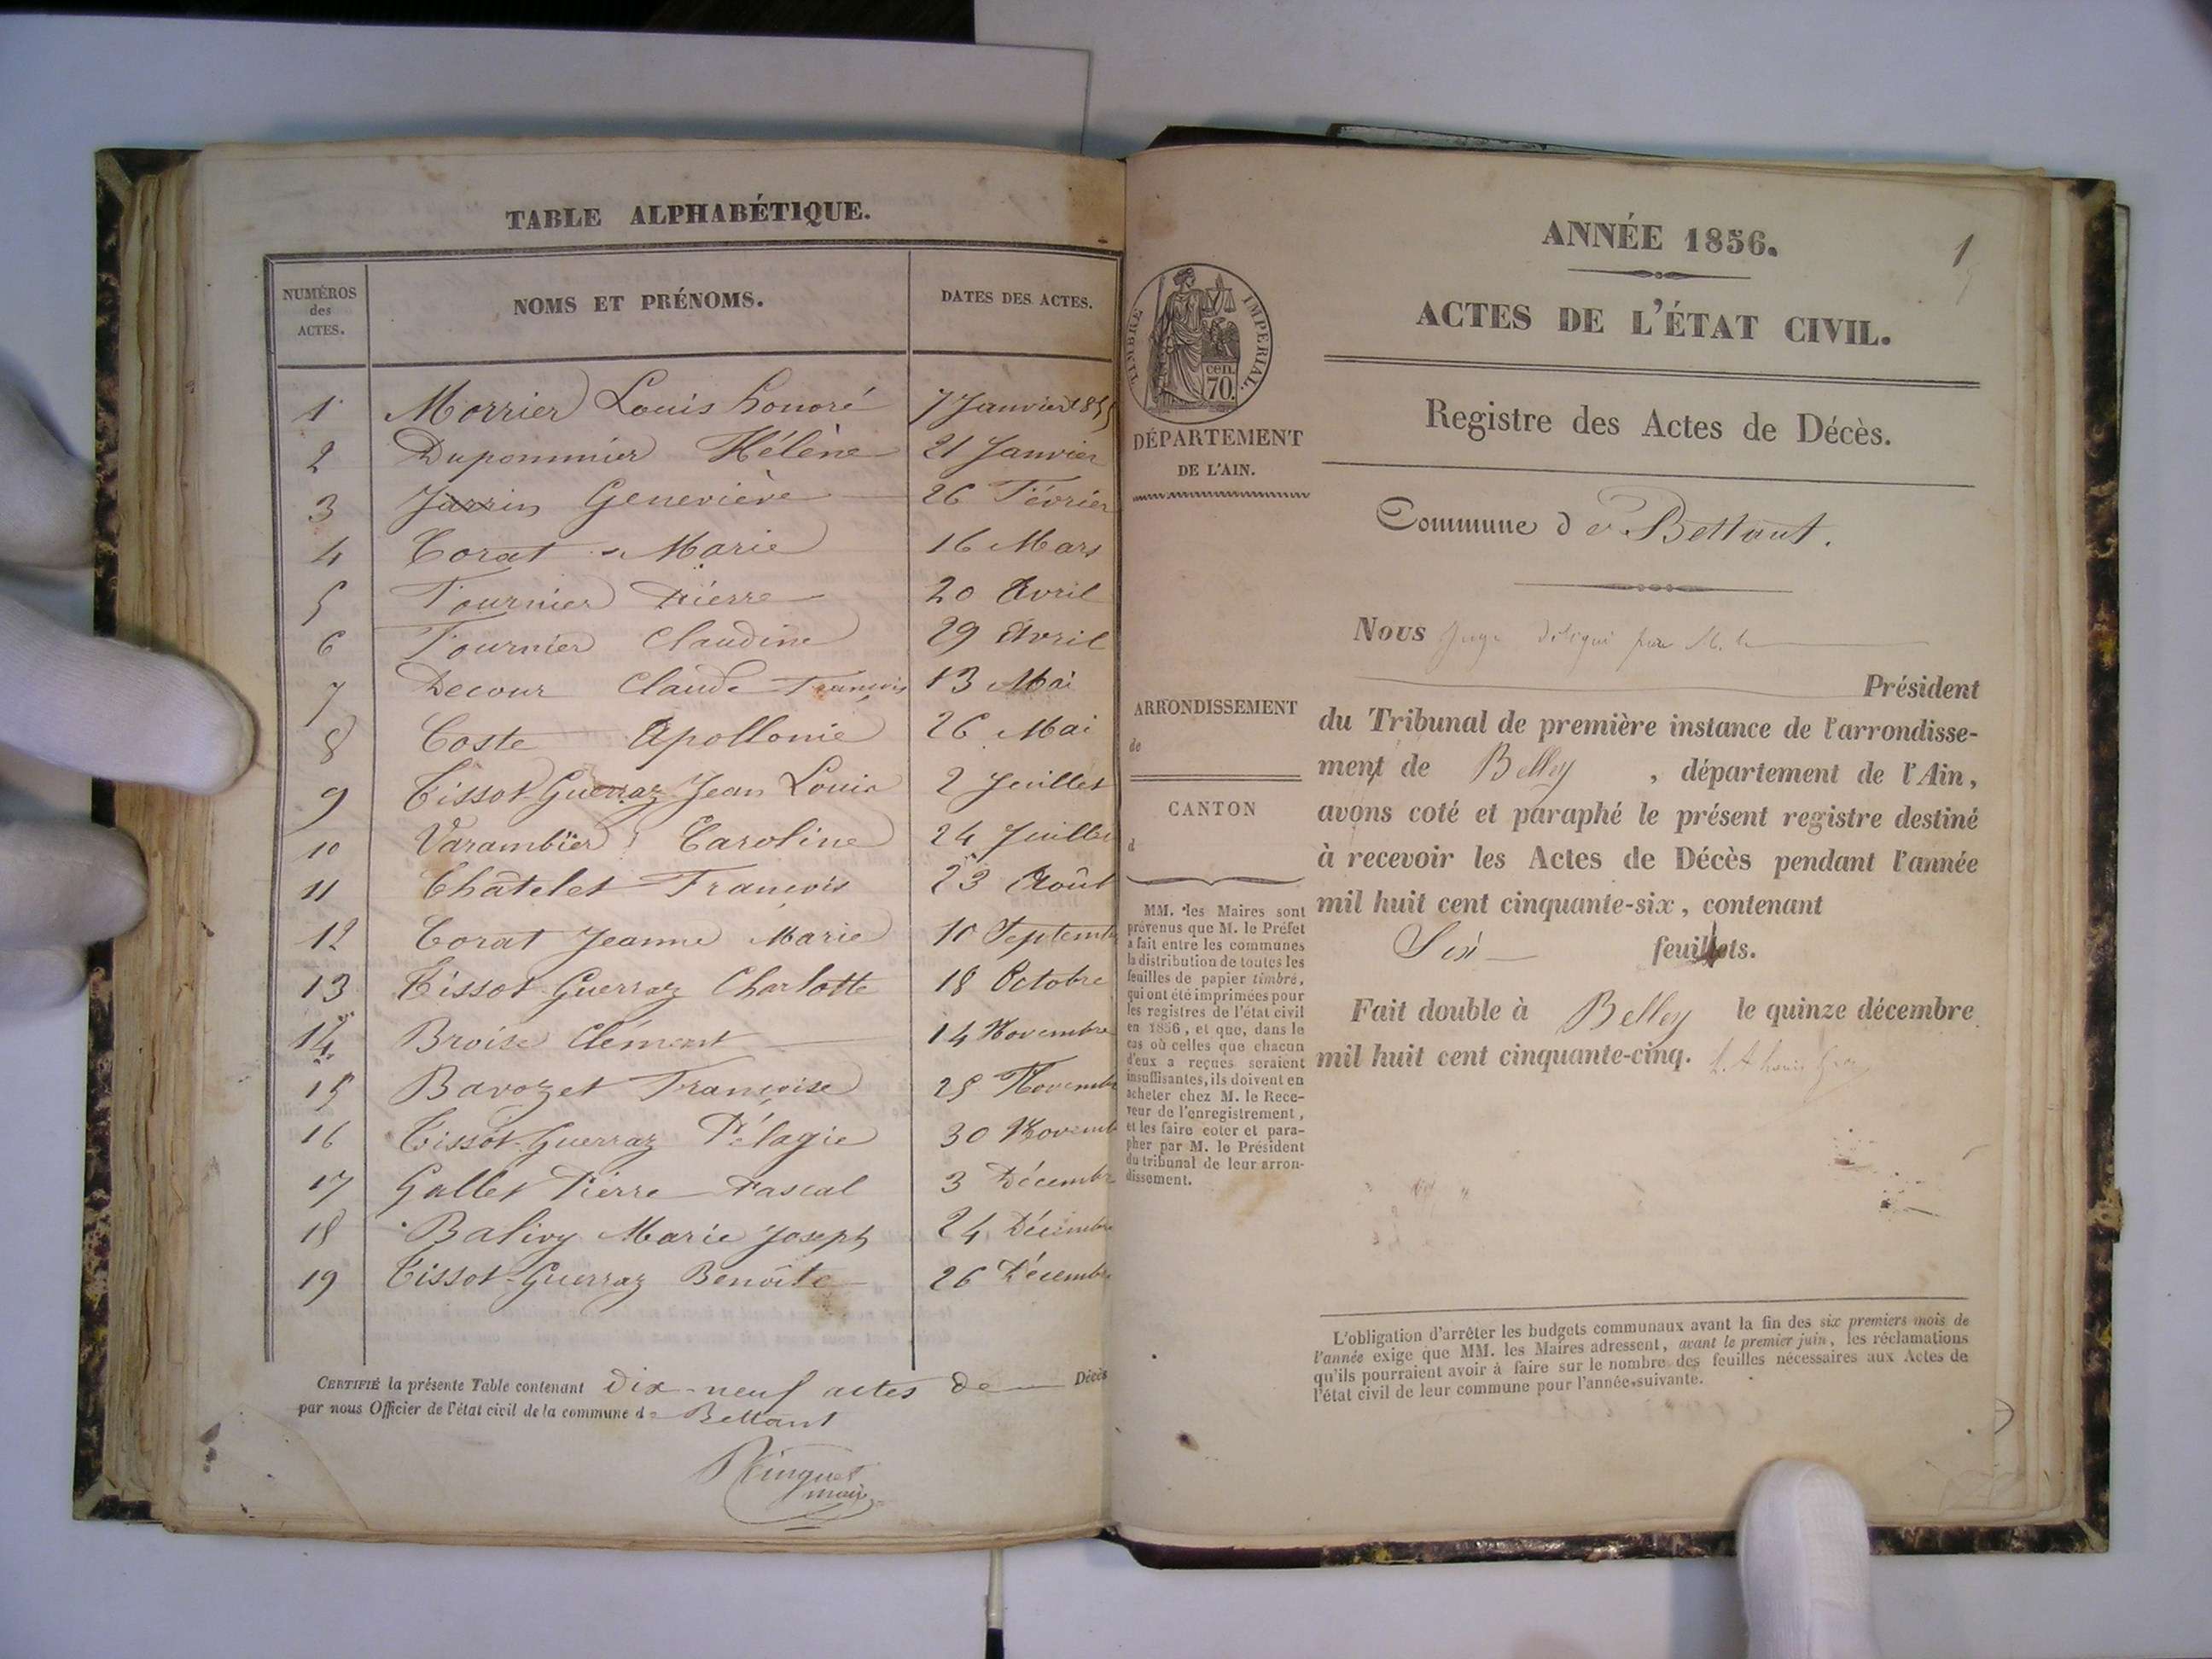 TABLE ALPHABÉTIQUE.
NUMÉROS des ACTES. NOMS ET PRÉNOMS. DATES DES ACTES.
1 Morrier Louis honoré 7 Janvier 1855
2 Dupommier Hélène 21 Janvier
3 Jarrin Geneviève 26 Février
4 Corat Marie 16 Mars
5 Fournier Pierre 20 Avril
6 Fournier Claudine 29 Avril
7 Decour Claude François 13 Mai
8 Coste Apollonie 26 Mai
9 Tissot-Guerraz Jean Louis 2 Juillet
10 Varambier Caroline 24 Juillet
11 Châtelet François 23 Août
12 Corat Jeanne Marie 10 Septemb
13 Tissot-Guerraz Charlotte 18 Octobre
14 Broise Clément 14 Novembre
15 Bavozet Françoise 25 Novemb
16 Tissot-Guerraz Pélagie 30 Novemb
17 Gallet Pierre Pascal 3 Décembr
18 Balivy Marie Joseph 24 Décembr
19 Tissot-Guerraz Benoîte 26 Décembr
CERTIFIÉ la présente Table contenant Dix-neuf actes de Décès
par nous Officier de l'état civil de la commune de Bettant
maire
1
ANNÉE 1856.
ACTES DE L'ÉTAT CIVIL.
TIMBRE IMPÉRIAL.
cen.
70.
DÉPARTEMENT
DE L'AIN.
Registre des Actes de Décès.
Commune de Bettant.
Nous Juge délégué par M. le
Président
du Tribunal de première instance de l'arrondisse-
ment de Belley, département de l'Ain,
avons coté et paraphé le présent registre destiné
à recevoir les Actes de Décès pendant l'année
mil huit cent cinquante-six, contenant
Six feuillets.
Fait double à Belley le quinze décembre
mil huit cent cinquante-cinq.
ARRONDISSEMENT
de
CANTON
d
MM. les Maires sont
prévenus que M. le Préfet
a fait entre les communes
la distribution de toutes les
feuilles de papier timbré,
qui ont été imprimées pour
les registres de l'état civil
en 1856, et que, dans le
cas où celles que chacun
d'eux a reçues seraient
insuffisantes, ils doivent en
acheter chez M. le Rece-
veur de l'enregistrement,
et les faire coter et para-
pher par M. le Président
du tribunal de leur arron-
dissement.
L'obligation d'arrêter les budgets communaux avant la fin des six premiers mois de
l'année exige que MM. les Maires adressent, avant le premier juin, les réclamations
qu'ils pourraient avoir à faire sur le nombre des feuilles nécessaires aux Actes de
l'état civil de leur commune pour l'année suivante.